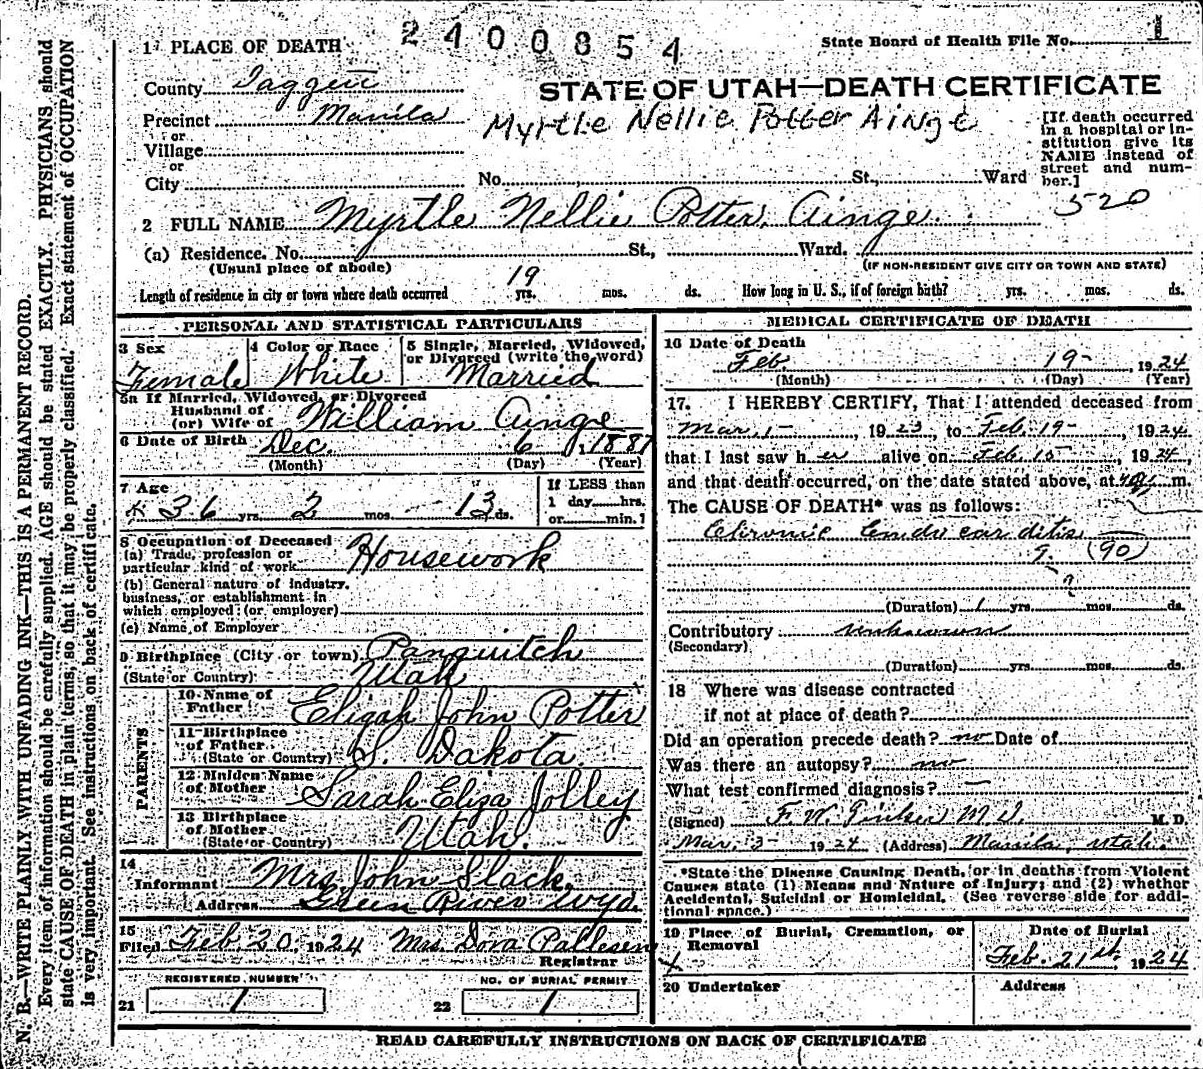 2400854
State Board of Health File No. 1
STATE OF UTAH—DEATH CERTIFICATE
1 PLACE OF DEATH
County Daggett
Precinct Manila
or
Village
or
City
Myrtle Nellie Potter Ainge
No. St., Ward
[If death occurred
in a hospital or in-
stitution give its
NAME instead of
street and num-
ber.]
520
2 FULL NAME Myrtle Nellie Potter Ainge
(a) Residence. No. St., Ward.
(Usual place of abode)
(IF NON-RESIDENT GIVE CITY OR TOWN AND STATE)
Length of residence in city or town where death occurred 19 yrs. mos. ds. How long in U. S., if of foreign birth? yrs. mos. ds.
PERSONAL AND STATISTICAL PARTICULARS
3 Sex
Female
4 Color or Race
White
5 Single, Married, Widowed,
or Divorced (write the word)
Married
5a If Married, Widowed, or Divorced
Husband of
(or) Wife of William Ainge
6 Date of Birth Dec. 6, 1887
(Month) (Day) (Year)
7 Age
36 yrs. 2 mos. 13 ds.
If LESS than
1 day hrs.
or min.?
8 Occupation of Deceased
(a) Trade, profession or
particular kind of work Housework
(b) General nature of industry,
business, or establishment in
which employed (or employer)
(c) Name of Employer
9 Birthplace (City or town) Panguitch
(State or Country) Utah
PARENTS
10 Name of
Father Eligah John Potter
11 Birthplace
of Father
(State or Country) S. Dakota.
12 Maiden Name
of Mother Sarah Eliza Jolley
13 Birthplace
of Mother
(State or Country) Utah.
14
Informant Mrs. John Slack.
Address Green River Wyo.
15
Filed Feb 20, 1924 Mrs. Dora Pallesen
Registrar
REGISTERED NUMBER
21 1
NO. OF BURIAL PERMIT
22 1
MEDICAL CERTIFICATE OF DEATH
16 Date of Death
Feb. 19- , 1924
(Month) (Day) (Year)
17. I HEREBY CERTIFY, That I attended deceased from
Mar. 1- , 1923, to Feb. 19- , 1924
that I last saw her alive on Feb 15 , 1924,
and that death occurred, on the date stated above, at m.
The CAUSE OF DEATH* was as follows:
Chronic Endocarditis
(90)
?
(Duration) 1 yrs. mos. ds.
Contributory unknown
(Secondary)
(Duration) yrs. mos. ds.
18 Where was disease contracted
if not at place of death?
Did an operation precede death? no Date of
Was there an autopsy? no
What test confirmed diagnosis? —
(Signed) F. W. M.D. M. D.
Mar. 3- 1924 (Address) Manila, Utah.
*State the Disease Causing Death, or in deaths from Violent
Causes state (1) Means and Nature of Injury; and (2) whether
Accidental, Suicidal or Homicidal. (See reverse side for addi-
tional space.)
19 Place of Burial, Cremation, or
Removal
Date of Burial
Feb. 21th, 1924
20 Undertaker
Address
READ CAREFULLY INSTRUCTIONS ON BACK OF CERTIFICATE
N. B.—WRITE PLAINLY WITH UNFADING INK—THIS IS A PERMANENT RECORD.
Every item of information should be carefully supplied. AGE should be stated EXACTLY. PHYSICIANS should
state CAUSE OF DEATH in plain terms, so that it may be properly classified. Exact statement of OCCUPATION
is very important. See instructions on back of certificate.